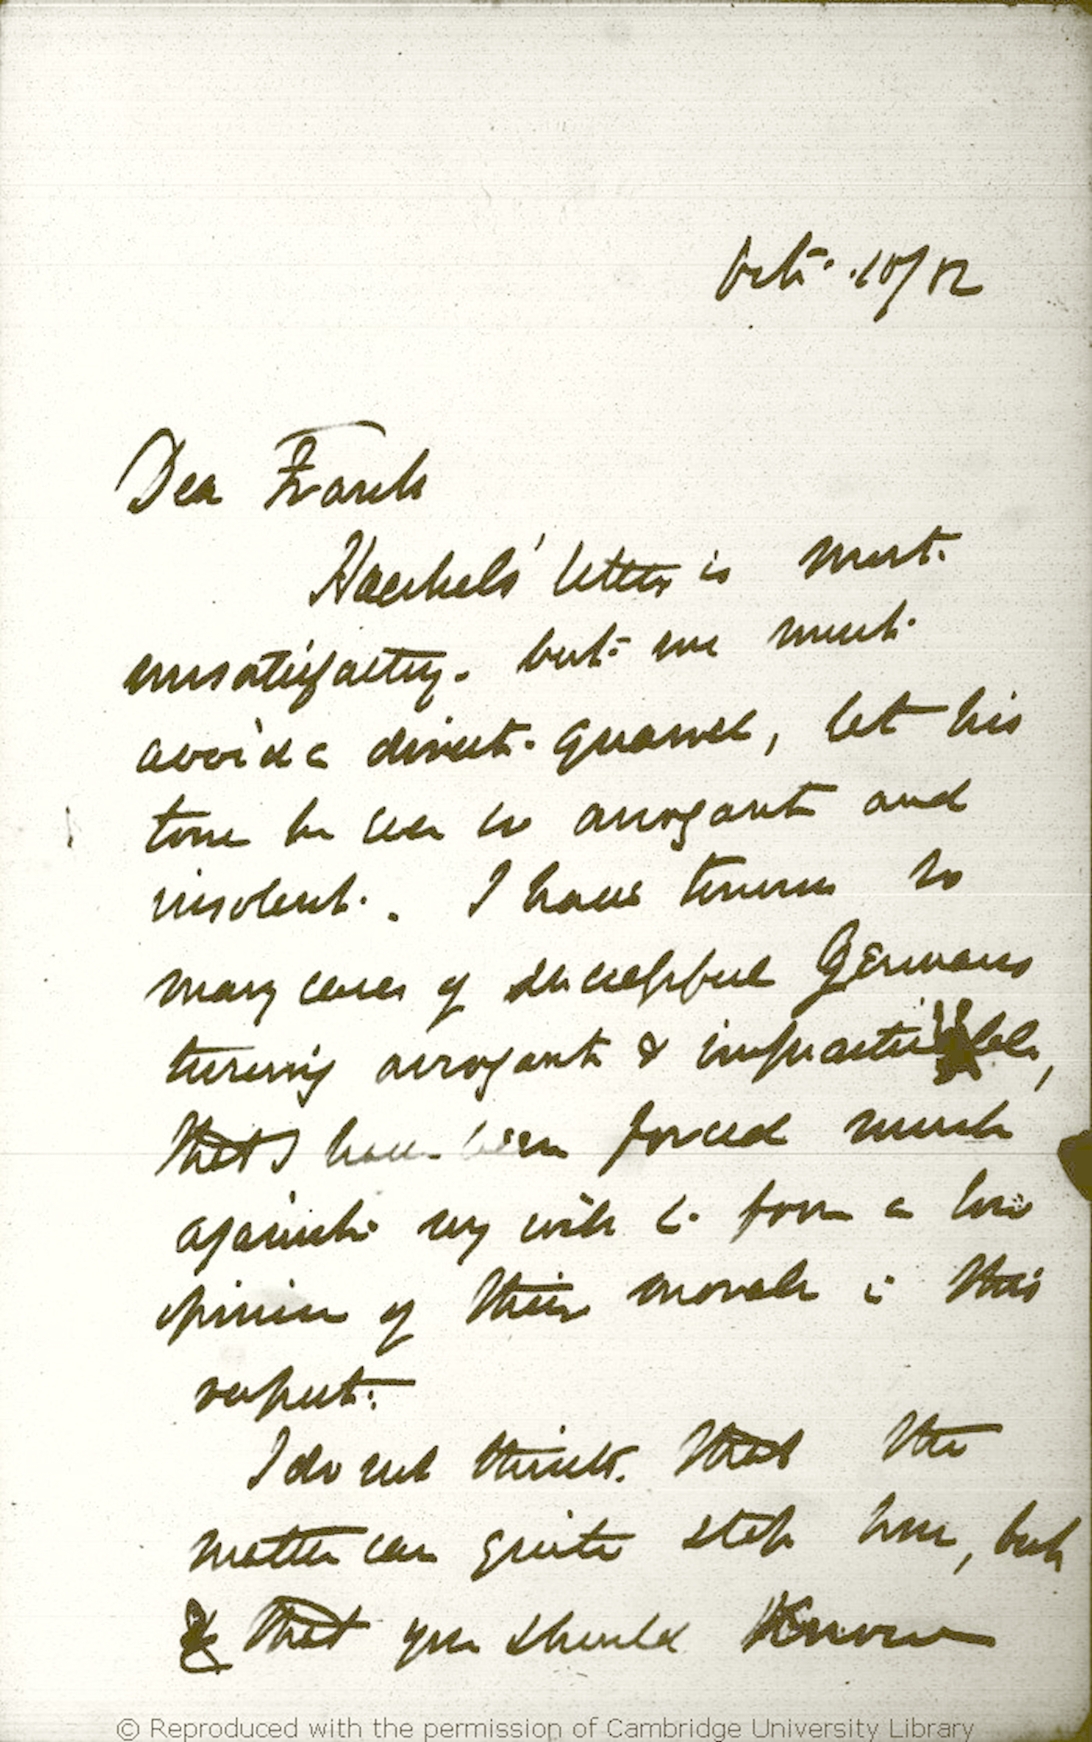 Octr. 10/82
Dear Frank
Haeckels' letter is most
unsatisfactory. but we must
avoid a direct quarrel, let his
tone be ever so arrogant and
insolent. I have known so
many cases of successful Germans
turning arrogant & impracticable,
that I have been forced much
against my will to form a low
opinion of their morals in this
respect.
I do not think that the
matter can quite stop here, but
& that you should know
© Reproduced with the permission of Cambridge University Library